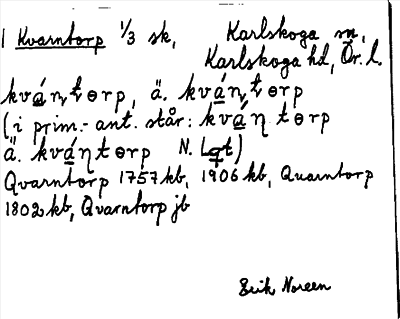 1 Kvarntorp 1/3 sk, Karlskoga sn,
Karlskoga hd, Ör. l.
kván̥t̥ɵrp, ä. kván̥t̥ɵrp
(i prim.-ant. står: kváη tɵrp
ä. kváη tɵrp N. Lqt)
Qvarntorp 1757 kb, 1906 kb, Quarntorp
1802 kb, Qvarntorp jb
Erik Noreen